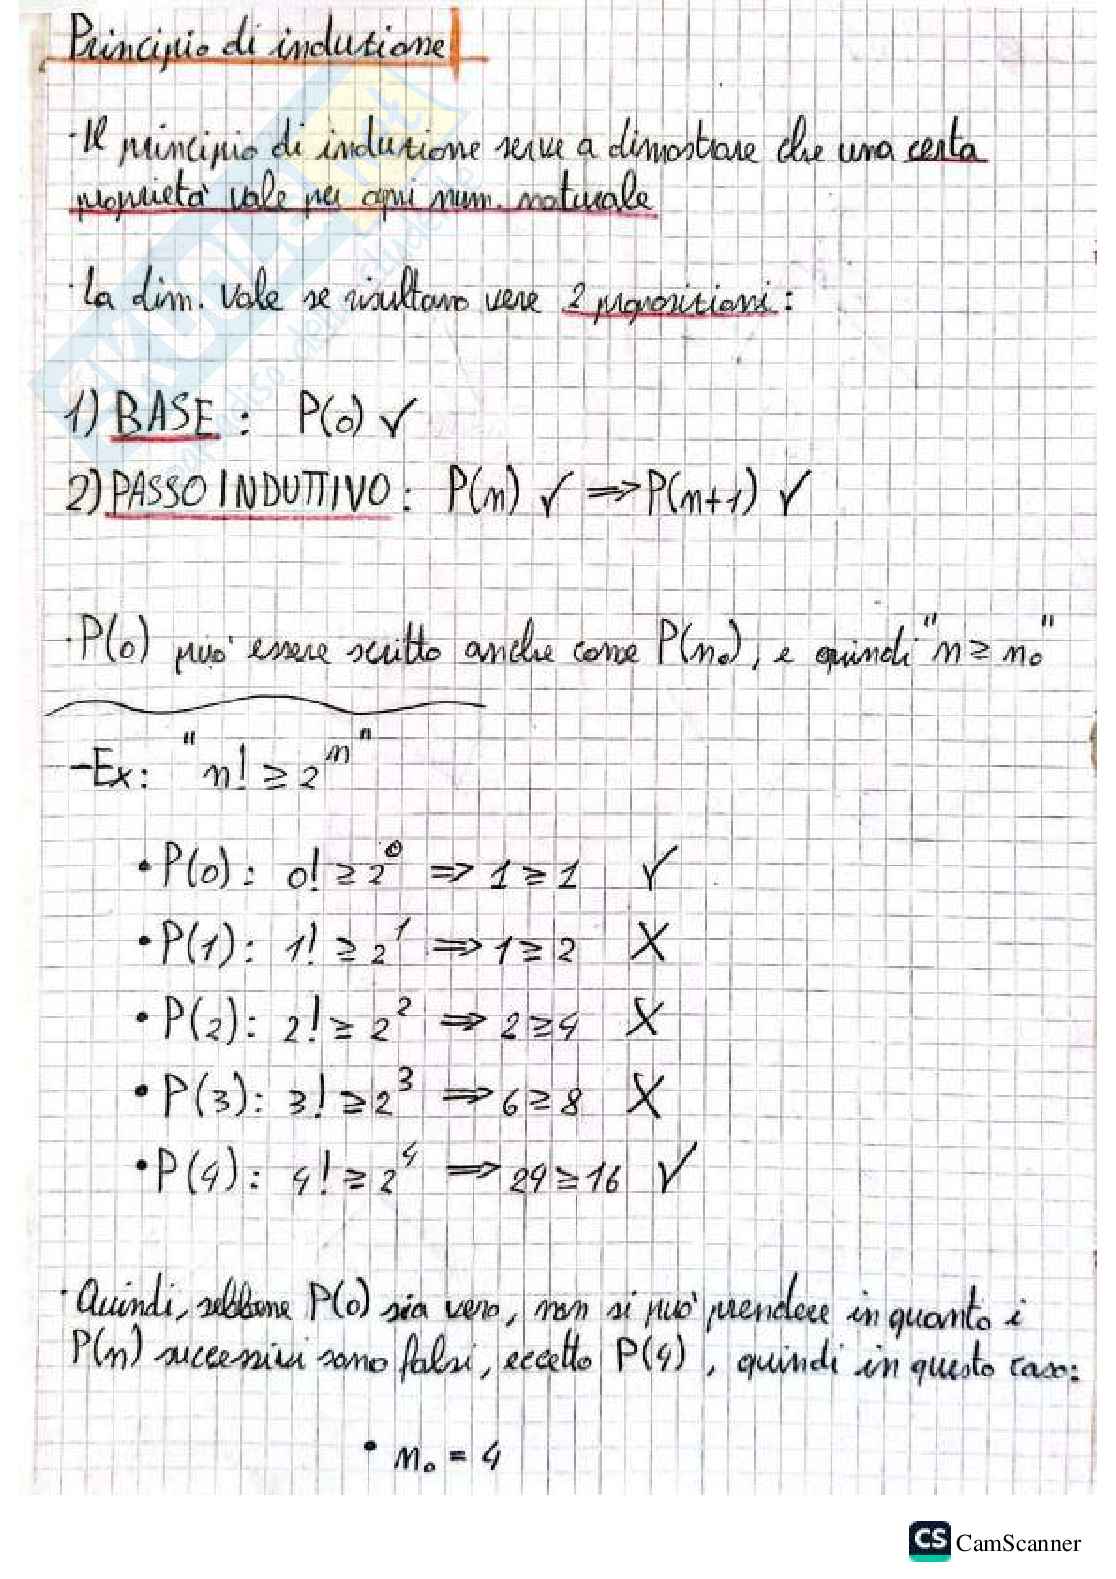 Principio di induzione
· Il principio di induzione serve a dimostrare che una certa
proprietà vale per ogni num. naturale
· La dim. vale se risultano vere 2 proposizioni:
1) BASE: P(0) ✓
2) PASSO INDUTTIVO: P(n) ✓ ⇒ P(n+1) ✓
· P(0) può essere scritto anche come P(n₀), e quindi "n ≥ n₀"
- Ex: "n! ≥ 2ⁿ"
• P(0): 0! ≥ 2⁰ ⇒ 1 ≥ 1 ✓
• P(1): 1! ≥ 2¹ ⇒ 1 ≥ 2 X
• P(2): 2! ≥ 2² ⇒ 2 ≥ 4 X
• P(3): 3! ≥ 2³ ⇒ 6 ≥ 8 X
• P(4): 4! ≥ 2⁴ ⇒ 24 ≥ 16 ✓
· Quindi, sebbene P(0) sia vero, non si può prendere in quanto i
P(n) successivi sono falsi, eccetto P(4), quindi in questo caso:
• n₀ = 4
CS CamScanner